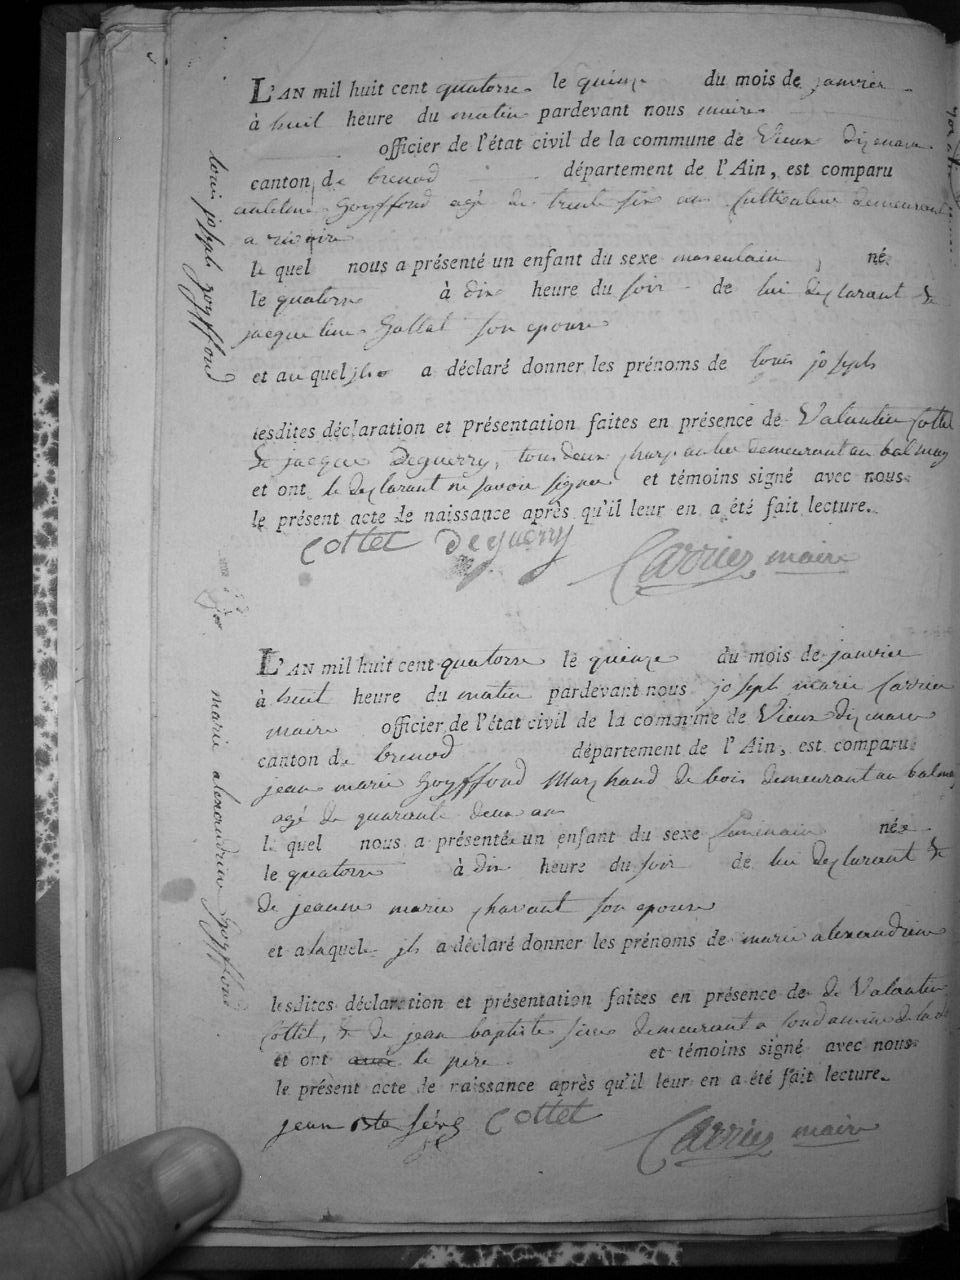 L'AN mil huit cent quatorse le quinze du mois de janvier
à huit heure du matin pardevant nous maire
officier de l'état civil de la commune de Vieux dizenave
canton de brenod département de l'Ain, est comparu
antelme goyffond agé de trente six an Cultivateur demeurant
a
le quel nous a présenté un enfant du sexe masculain, né
le quatorse à dix heure du soir de lui declarant &
jacqueline Gottet son epouse
et au quel il a déclaré donner les prénoms de louis joseph
lesdites déclaration et présentation faites en présence de Valantin Cottet
& jacque Deguerry, tous deux charpantier demeurant au balmay
et ont le declarant ne savoir signer et témoins signé avec nous
le présent acte de naissance après qu'il leur en a été fait lecture.
Cottet Deguerry Carrier maire
louis joseph goyffond
L'AN mil huit cent quatorse le quinze du mois de janvier
à huit heure du matin pardevant nous joseph marie Carrier
maire officier de l'état civil de la commune de Vieux dizenave
canton de brenod département de l'Ain, est comparu
jean marie goyffond marchand de bois demeurant au balmay
agé de quarante deux an
le quel nous a présenté un enfant du sexe feminain née
le quatorse à dix heure du soir de lui declarant &
de jeanne marie chavant son epouse
et a laquele il a déclaré donner les prénoms de marie alexandrine
lesdites déclaration et présentation faites en présence de de Valantin
Cottet, & de jean baptiste demeurant a
et ont le pere et témoins signé avec nous
le présent acte de naissance après qu'il leur en a été fait lecture.
jean bte Cottet Carrier maire
marie alexandrine goyffond